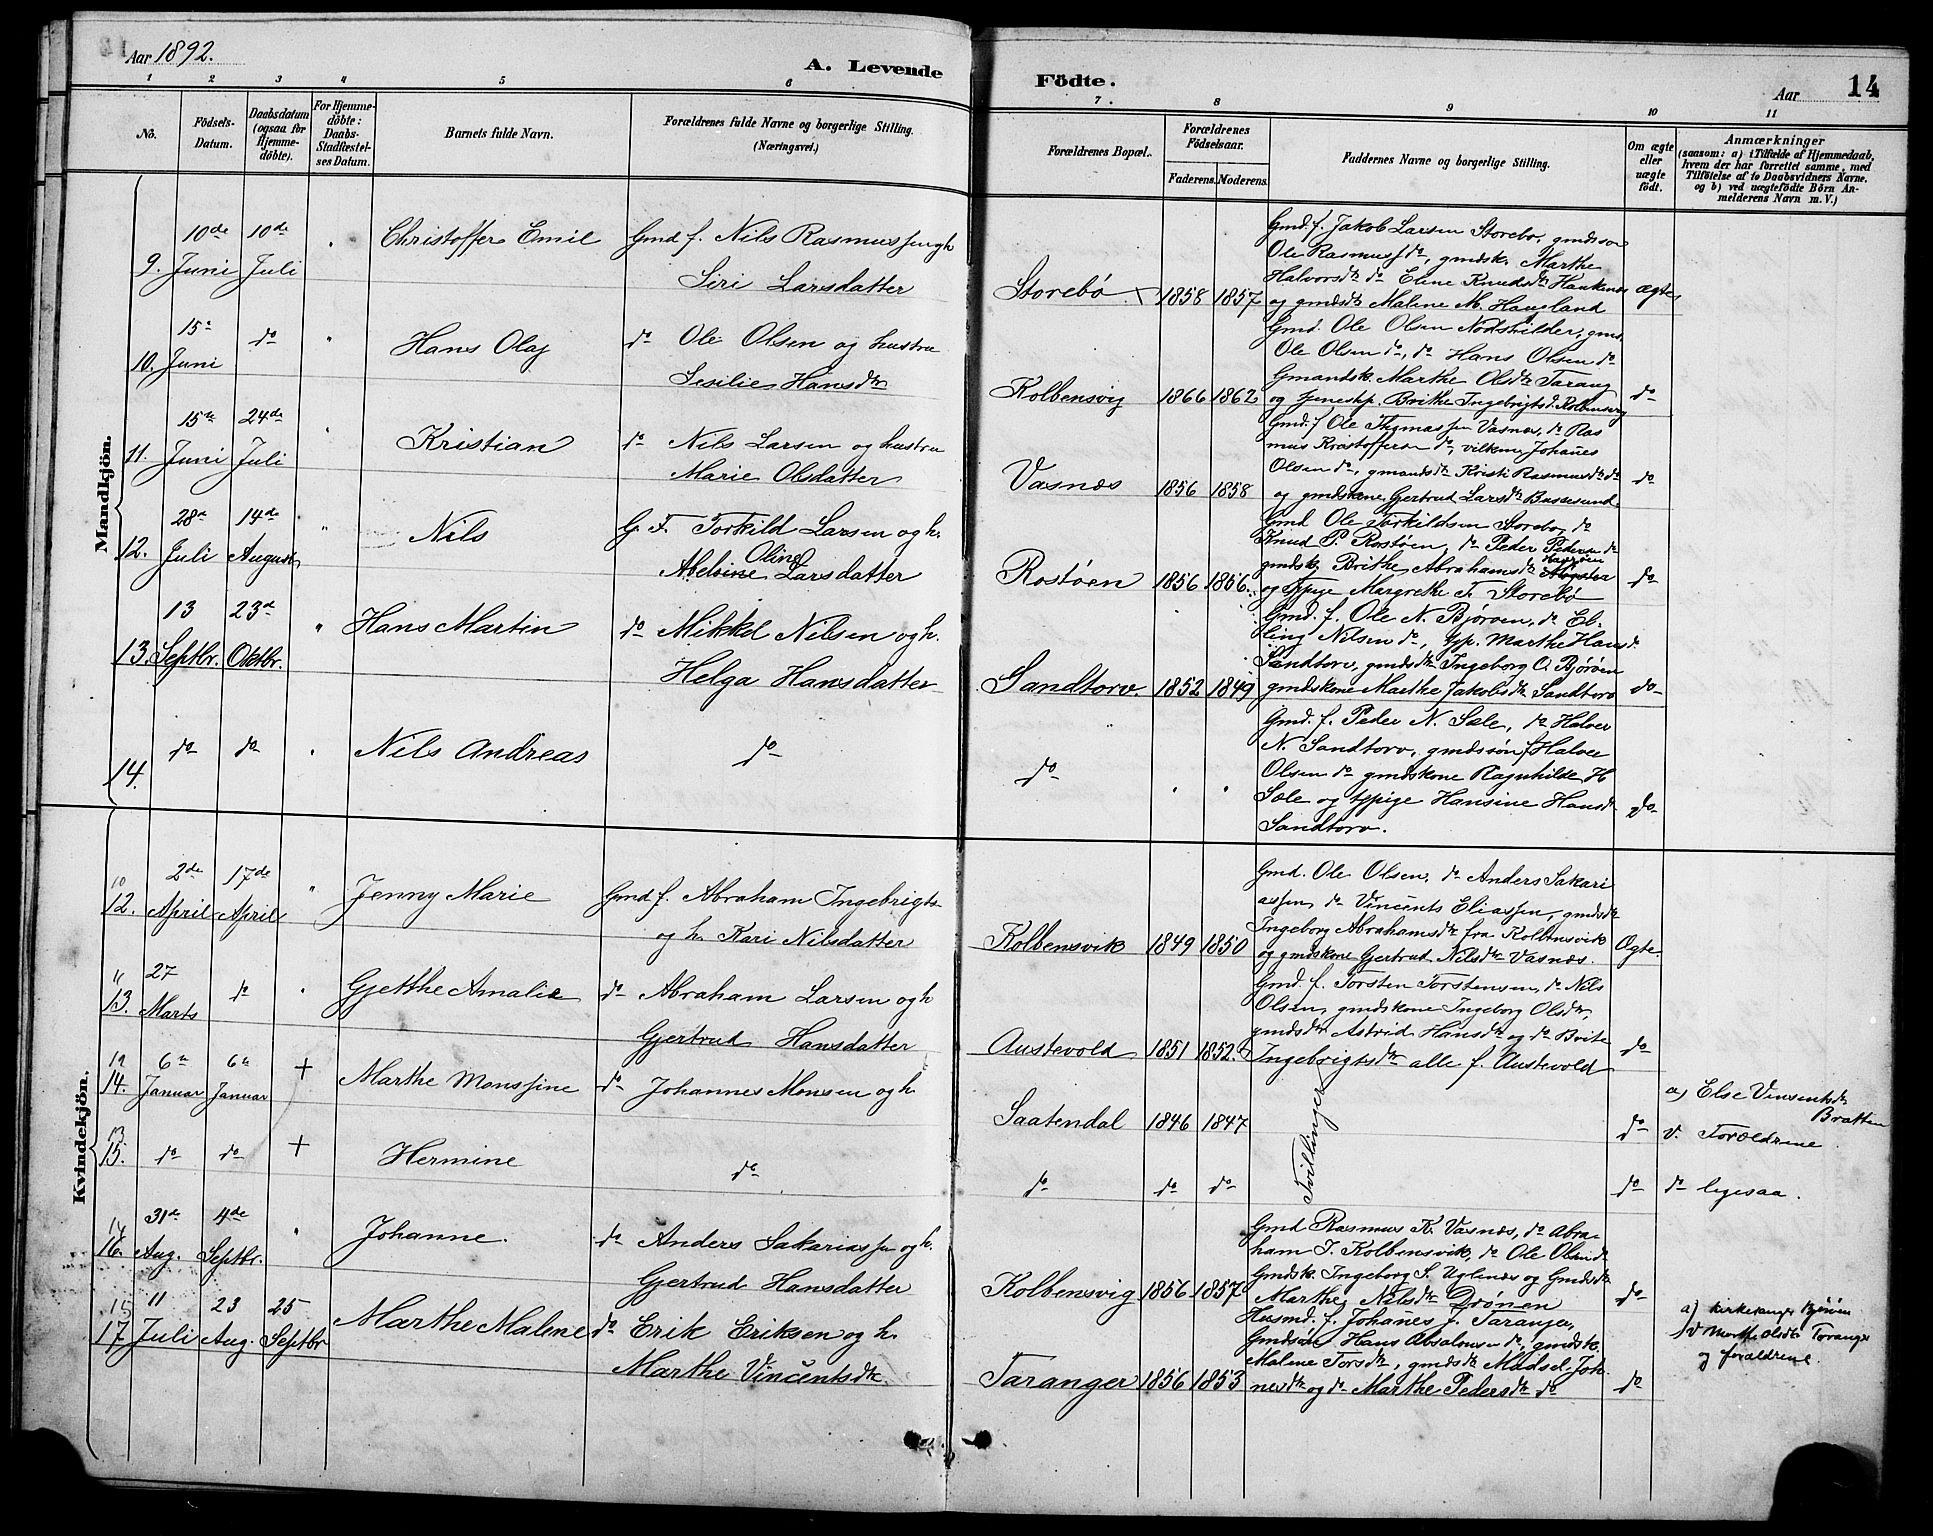 Aar 1892.
A. Levende
Födte.
Aar
14
1 2 3 4 5 6 7 8 9 10 11
No.
Födsels-
Datum.
Daabsdatum
(ogsaa for
Hjemme-
döbte).
For Hjemme-
döbte:
Daabs-
Stadfæstel-
ses Datum.
Barnets fulde Navn.
Forældrenes fulde Navne og borgerlige Stilling.
(Næringsvei.)
Forældrenes Bopæl.
Forældrenes
Födselsaar.
Faderens. Moderens.
Faddernes Navne og borgerlige Stilling.
Om ægte
eller
uægte
födt.
Anmærkninger
(saasom: a) i Tilfælde af Hjemmedaab,
hvem der har forrettet samme, med
Tilföielse af to Daabsvidners Navne.
og b) ved uægtefödte Börn An-
melderens Navn m. V.)
Mandkjön.
9. 10de Juni 10de Juli " Christoffer Emil
Gmd f. Nils Rasmussen gh
Siri Larsdatter
Storebø 1858 1857
Gmd. f. Jakob Larsen Storebø, gmdsøn
Ole Rasmuss do, gmdsk. Marthe
Halvorsdtr do Elene Knudsdtr Haukenæs
og gmdsdtr Malene M. Haugland
ægte
10. 15de Juni do " Hans Olaj
do Ole Olsen og hustru
Sesilie Hansdtr
Kolbensvig 1866 1862
Gmd. Ole Olsen Nodskilder, gmd.
Ole Olsen do, do Hans Olsen do
Gmandsk. Marthe Olsdtr Tarang
og tjenestp. Brithe Ingebrigtsd. Kolbensvig
do
11. 15de Juni 24de Juli " Kristian
do Nils Larsen og hustru
Marie Olsdatter
Vasnæs 1856 1858
Gmd. f Ole Thomassen Vasnæs, do Ras
mus Kristoffersen do, Johanes
Olsen do, gmandsdtr Kristi Rasmusdtr do
og gmdskone Gjertrud Larsdtr Bussesund
do
12. 28de Juli 14de August " Nils
G. F. Torkild Larsen og h.
Oline
Abeloine Larsdatter
Rostøen 1856 1856
Gmd Ole Torkildsen Storebø, do
Knud P. Rostøen, do Peder Pedersen do
gmdsk Brithe Abrahamsdtr
og Tpige Margrethe T. Storebø
do
13. 13 Septbr. 23de Oktbr. " Hans Martin
do Mikkel Nilsen og h.
Helga Hansdatter
Sandtorv. 1852 1849
Gmd. f. Ole N. Bjørøen, do El-
ling Nilsen do, tjp. Marthe Hansd.
Sandtorv, gmdsdtr Ingeborg O. Bjørøen
gmdskone Marthe Jakobsdtr Sandtorv
do
14. do do " Nils Andreas
do
do " "
Gmd. f. Peder N. Sæle, do Halvor
N. Sandtorv, gmdssøn f Halvor
Olsen do gmdskone Ragnhilde H
Sæle og tjpige Hansine Hansdtr
Sandtorv.
do
Kvindekjön.
10
12. 2de April 17de April " Jenny Marie
Gmd f. Abraham Ingebrigts-
og h. Kari Nilsdatter
Kolbensvik 1849 1850
Gmd. Ole Olsen, do Anders Sakari
assen do Vincents Eliassen, gmdsdtr
Ingeborg Abrahamsdtr fra Kolbensvik
og gmdskone Gjertrud Nilsdtr Vasnæs.
Ægte.
11
13. 27 Marts do " Gjetthe Amalie
do Abraham Larsen og h
Gjertrud Hansdatter
Austevold 1851 1852
Gmd. f. Torsten Torstensen, do Nils
Olsen, gmdskone Ingeborg Olsdtr,
gmdsdtr Astrid Hansdtr og do Brite
Ingebrigtsdtr alle f. Austevold
do
12
14. 6te Januar 6te Januar + Marthe Monssine
do Johannes Monsen og h.
Saatendal 1846 1847
Tvillinger
do
a) Else Vinsentsdtr
Bratten
v. Forældrene
13
15. do do + Hermine
do
do do do
do
do ligesaa.
14
16. 31de Aug. 4de Septbr. " Johanne.
do Anders Sakariassen og h.
Gjertrud Hansdatter
Kolbensvig 1856 1857
Gmd Rasmus K. Vasnæs, do Abra-
ham I. Kolbensvik, do Ole Olsen do
Gmdsk. Ingeborg S. Uglenæs og Gmdsdtr
Marthe Nilsdtr Drönen
do
15
17 11 Juli 23 Aug. 25 Septbr Marthe Malene
do Erik Eriksen og h.
Marthe Vincentsdtr.
Taranger 1856 1853
Husmd. f. Johanes J. Taranger,
Gmdsön Hans Absalonsen do, gmdsk.
Malene Torsdtr, gmdsdtr Madsel Joh-
nesdtr og do Marthe Pedersdtr do
do
a) kirkesanger Bjøröen
v Marthe Olsdtr Toranger
og forældrene.